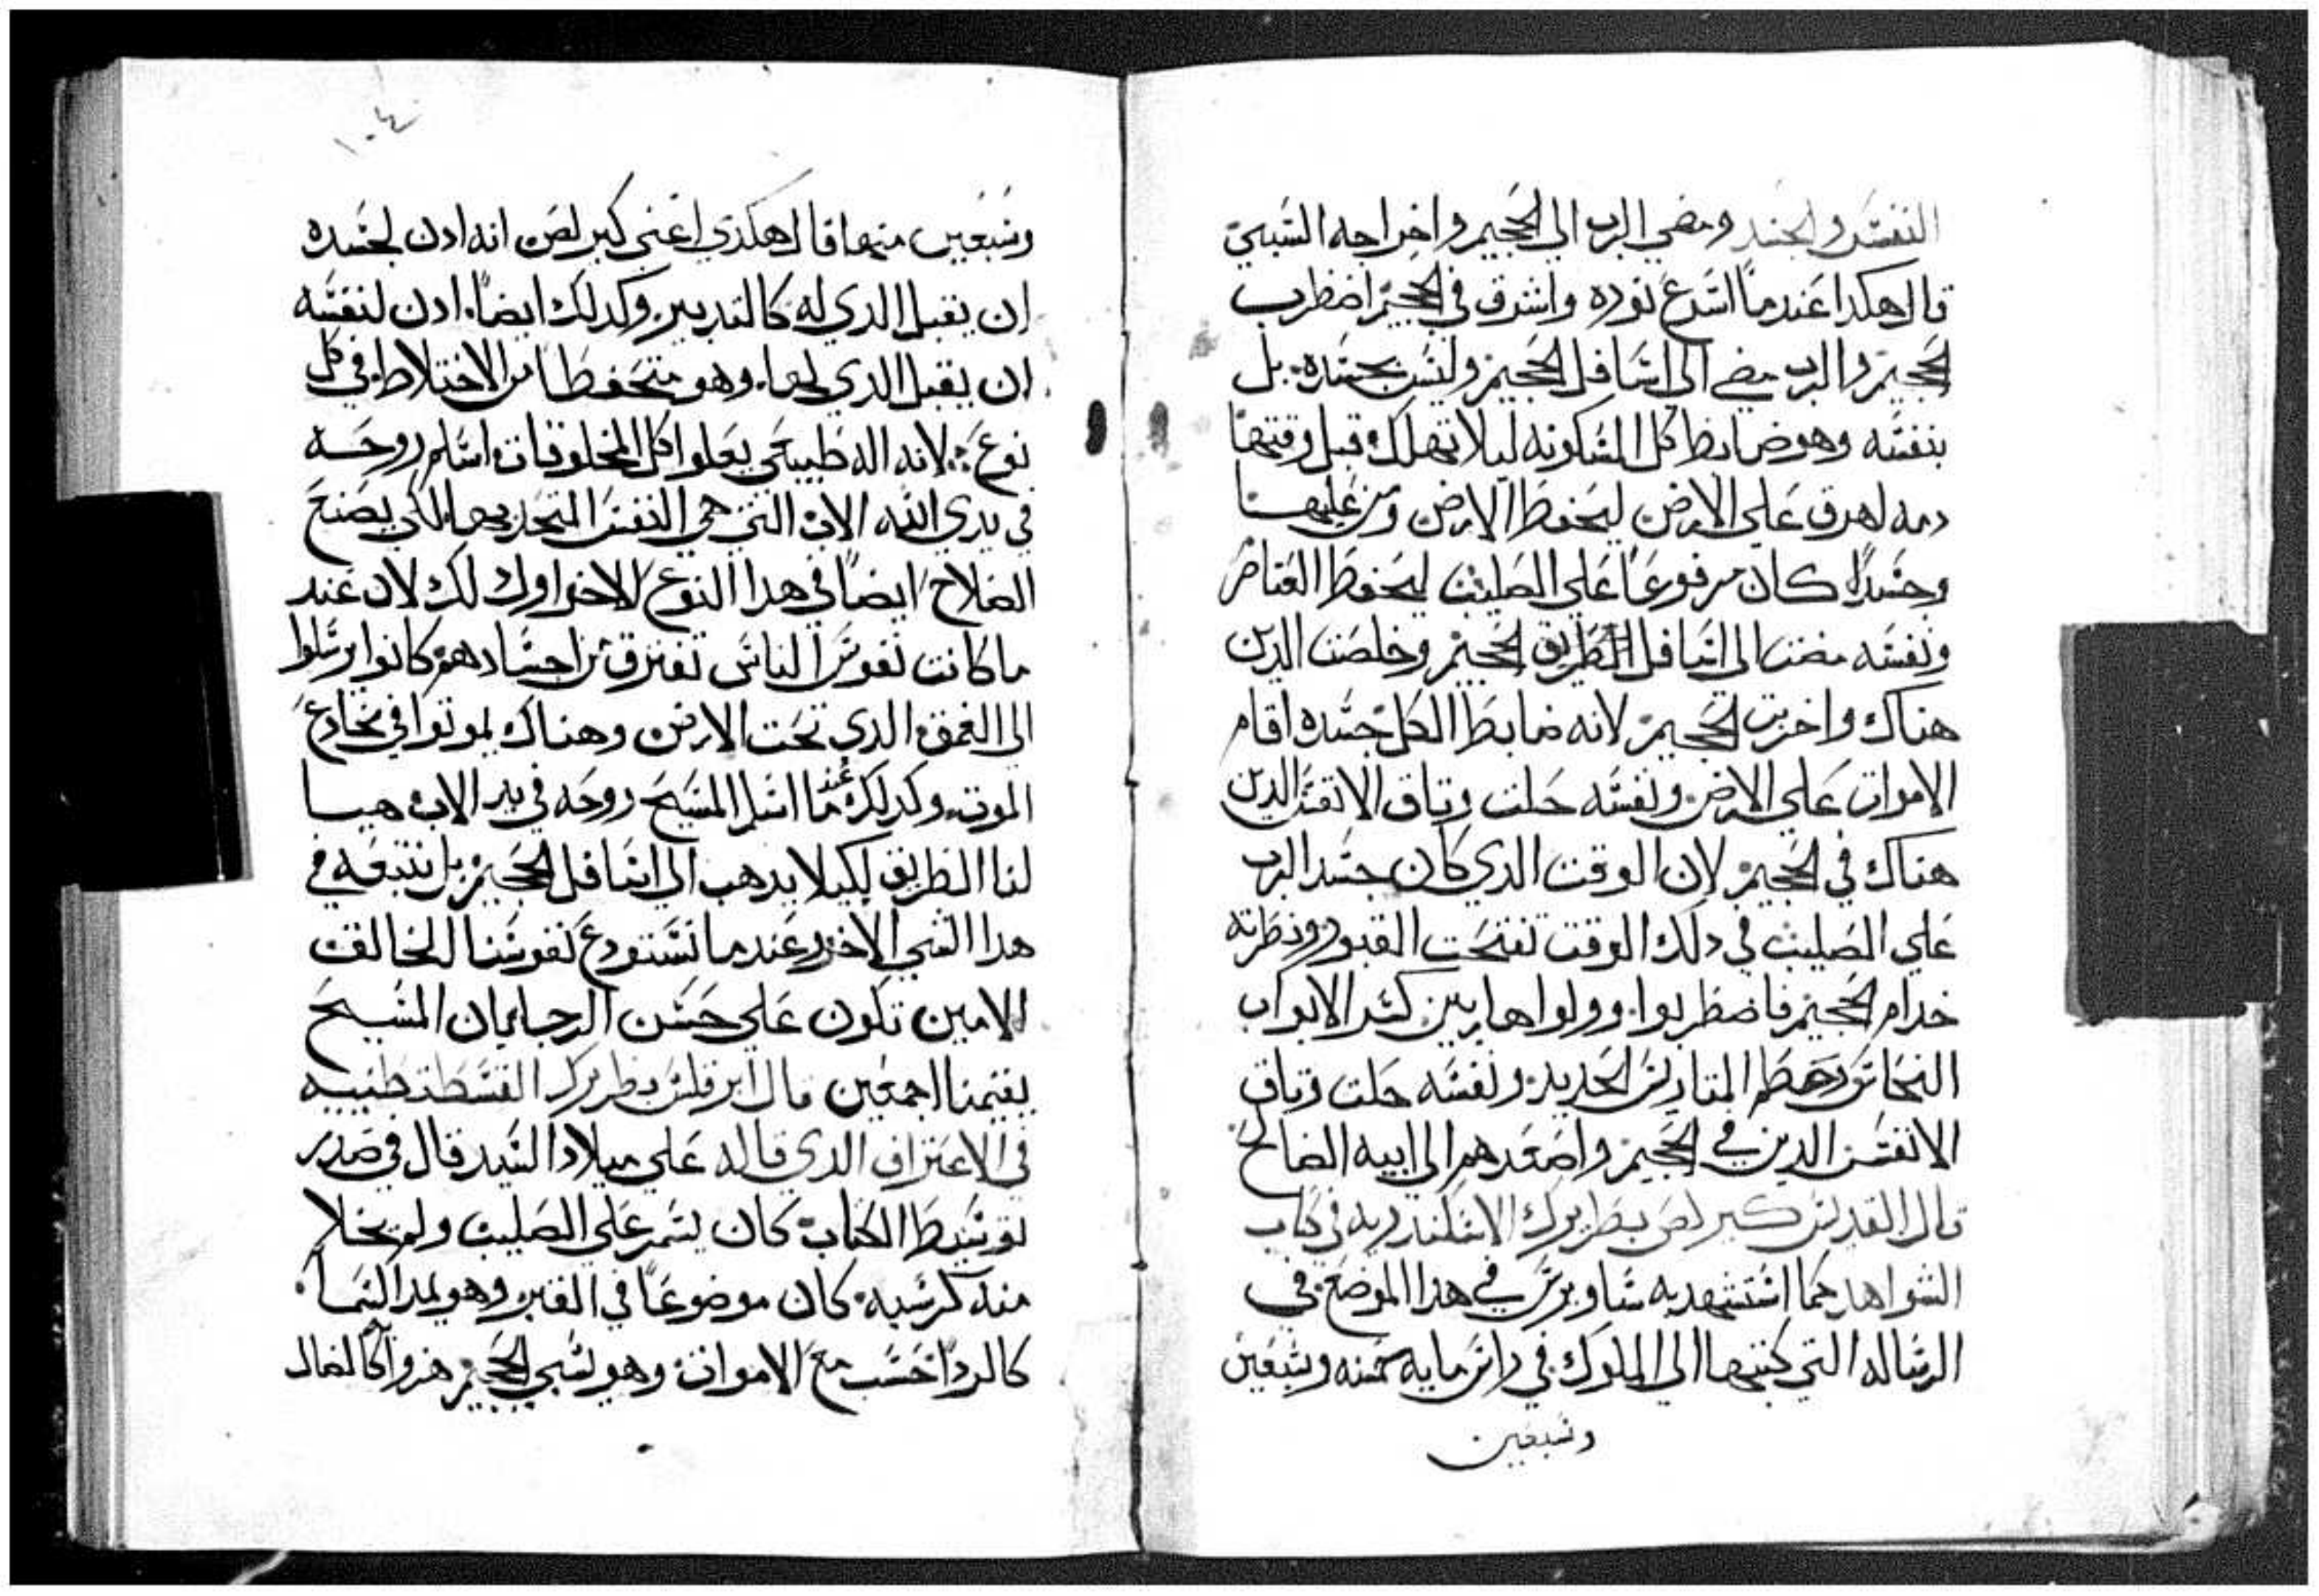 النفس والجسد ومضي الرب الي الجحيم واخراجه السبي
قال هكدا عندما اسرع نوره واشرق في الجحيم اضطرب
الجحيم والرب مضي الي اسافل الجحيم وليس بجسده بل
بنفسه وهو ضابط كل المسكونه ليلا تهلك قبل وقتها
دمه اهرق علي الارض ليحفظ الارض ومن عليها
وجسدا كان مرفوعا علي الصليب ليحفظ العناصر
ونفسه مضت الي اسافل الطريق الجحيم وخلصت الدين
هناك واخربت الجحيم لانه ضابط الكل جسده اقام
الاموات علي الارض ونفسه حلت وتاق الانفس الدين
هناك في الجحيم لان الوقت الدي كان جسد الرب
علي الصليب في دلك الوقت تفتحت القبور ونظرته
خدام الجحيم فاضطربوا وولوا هاربين كسر الابواب
النحاس وحطم المتاريس الحديد ونفسه حلت وتاق
الانفس الدين في الجحيم واصعدهم الي ابيه الصالح
قال القديس كيرلص بطريرك الاسكندريه في كتاب
الشواهد كما استشهد به ساويرس في هدا الموضع في
الرساله التي كتبها الي الملوك في راس مايه خمسه وسبعين
وسبعين
١٠٤
وسبعين منها قال هكدي اعني كيرلص انه ادن لجسده
ان يقبل الدي له كالتدبير وكدلك ايضا ادن لنفسه
ان يقبل الدي لها وهو متحفظا من الاختلاط في كل
نوع لانه اله طبيعي يعلوا كل المخلوقات اسلم روحه
في يدي الله الاب التي هي النفس المتحد بها لكي يصنع
الصلاح ايضا في هدا النوع الاخر اولك لك لان عند
ما كانت نفوس الناس تفترق من اجسادهم كانوا يرسلوا
الي الغمق الدي تحت الارض وهناك يموتوا في مخادع
الموت وكدلك عند ما اسلم المسيح روحه في يد الاب هيا
لنا الطريق لكيلا يدهب الي اسافل الجحيم بل نتبعه في
هدا الشي الاخر عندما نستودع نفوسنا الخالق
الامين تكون علي حسن الرجا بان المسيح
يقيمنا اجمعين قال ابرقلس بطريرك القسطنطنيه
في الاعتراف الدي قاله علي ميلاد السيد قال في صدر
توسيط الكتاب كان يسمر علي الصليب ولم يخلا
منه كرسيه كان موضوعا في القبر وهو يمد السما
كالردا حسب مع الاموات وهو لسبي الجحيم